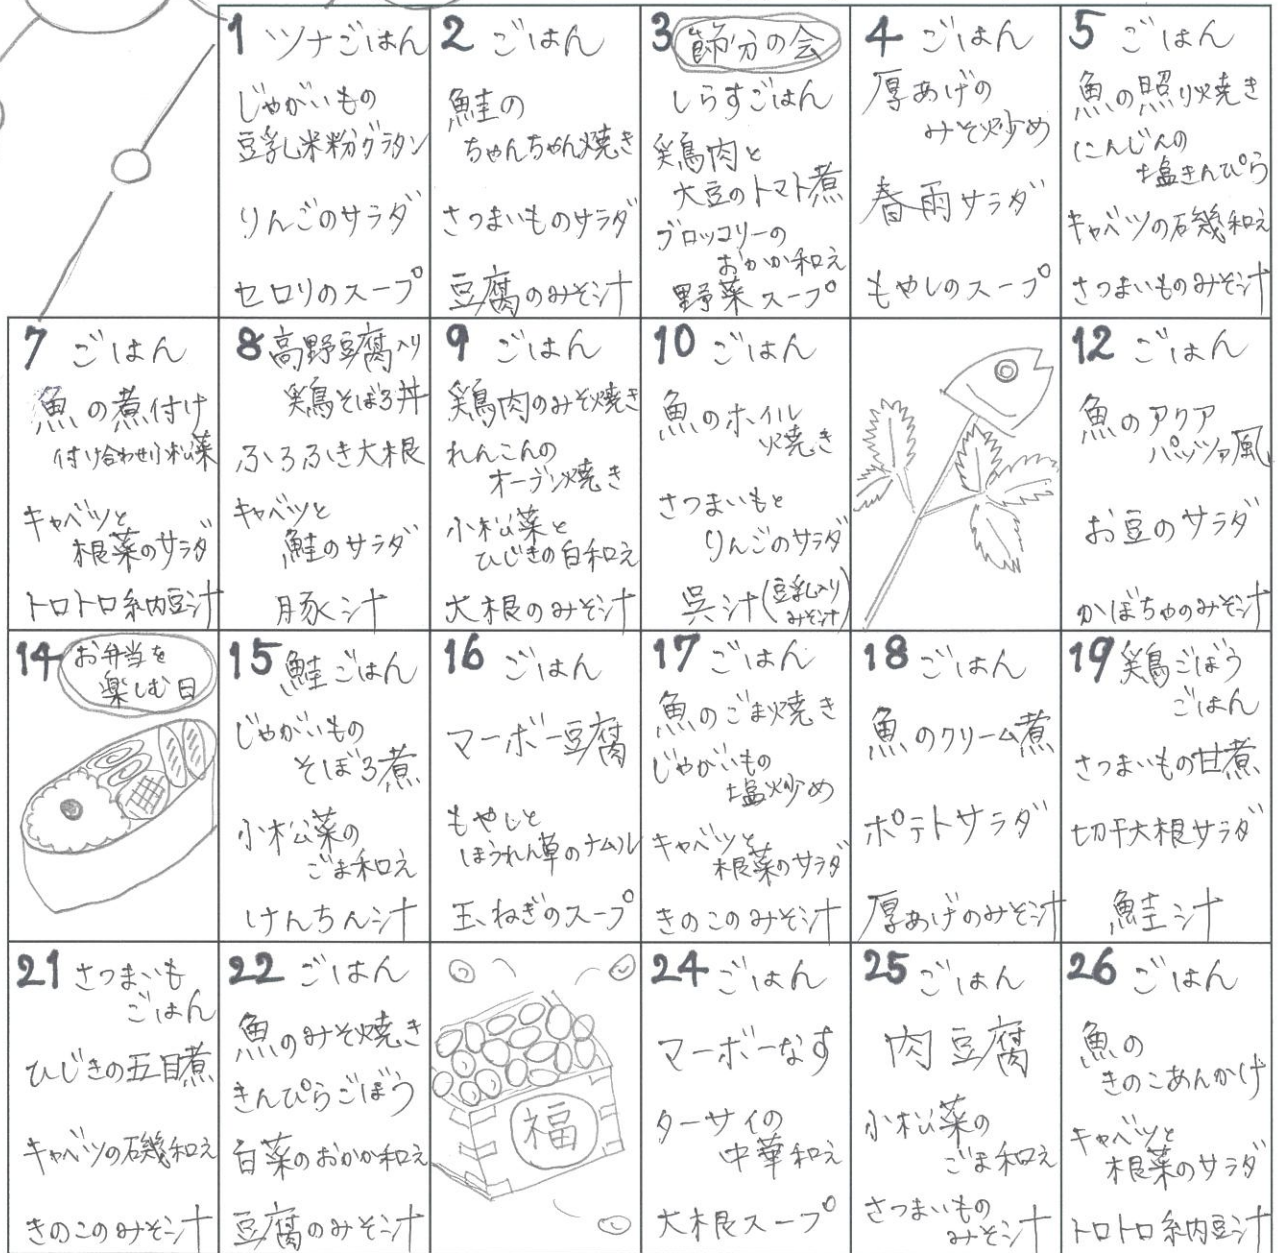 1 ツナごはん
じゃがいもの
豆乳米粉グラタン
りんごのサラダ
セロリのスープ
2 ごはん
鮭の
ちゃんちゃん焼き
さつまいものサラダ
豆腐のみそ汁
3 節分の会
しらすごはん
鶏肉と
大豆のトマト煮
ブロッコリーの
おかか和え
野菜スープ
4 ごはん
厚あげの
みそ炒め
春雨サラダ
もやしのスープ
5 ごはん
魚の照り焼き
にんじんの
塩きんぴら
キャベツの磯和え
さつまいものみそ汁
7 ごはん
魚の煮付け
付け合わせ小松菜
キャベツと
根菜のサラダ
トロトロ納豆汁
8 高野豆腐入り
鶏そぼろ丼
ふろふき大根
キャベツと
鮭のサラダ
豚汁
9 ごはん
鶏肉のみそ焼き
れんこんの
オーブン焼き
小松菜と
ひじきの白和え
大根のみそ汁
10 ごはん
魚のホイル
焼き
さつまいもと
りんごのサラダ
呉汁(豆乳入り
みそ汁)
12 ごはん
魚のアクア
パッツァ風
お豆のサラダ
かぼちゃのみそ汁
14 お弁当を
楽しむ日
15 鮭ごはん
じゃがいもの
そぼろ煮
小松菜の
ごま和え
けんちん汁
16 ごはん
マーボー豆腐
もやしと
ほうれん草のナムル
玉ねぎのスープ
17 ごはん
魚のごま焼き
じゃがいもの
塩炒め
キャベツと
根菜のサラダ
きのこのみそ汁
18 ごはん
魚のクリーム煮
ポテトサラダ
厚あげのみそ汁
19 鶏ごぼう
ごはん
さつまいもの甘煮
切干大根サラダ
鮭汁
21 さつまいも
ごはん
ひじきの五目煮
キャベツの磯和え
きのこのみそ汁
22 ごはん
魚のみそ焼き
きんぴらごぼう
白菜のおかか和え
豆腐のみそ汁
福
24 ごはん
マーボーなす
ターサイの
中華和え
大根スープ
25 ごはん
肉豆腐
小松菜の
ごま和え
さつまいもの
みそ汁
26 ごはん
魚の
きのこあんかけ
キャベツと
根菜のサラダ
トロトロ納豆汁